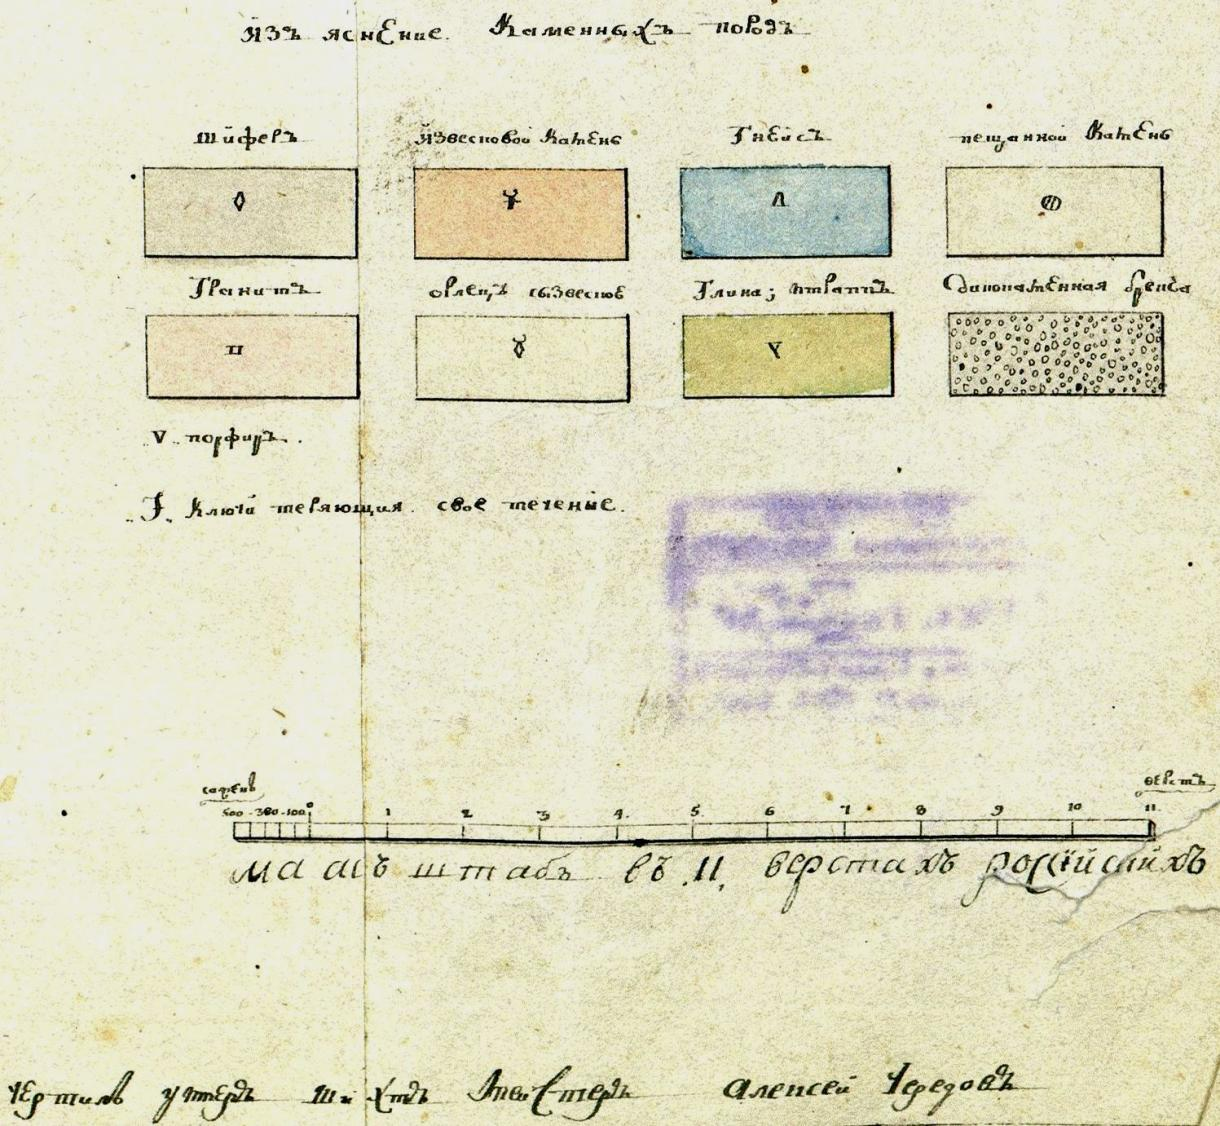 Изъяснение Каменныхъ породъ
Шиферъ Известковой Камень Гнейсъ песчанной Камень
Гранитъ орлецъ съизвестью Глина; итраппъ Дикокаменная брекча
V. порфиръ.
Ключи теряющия свое течение.
саженъ верстъ
500 300 100 0 1 2 3 4 5 6 7 8 9 10 11
маасъ штабъ въ 11 верстахъ российскихъ
Чертилъ унтеръ Шихтъ Мейстеръ Алексей Чередовъ